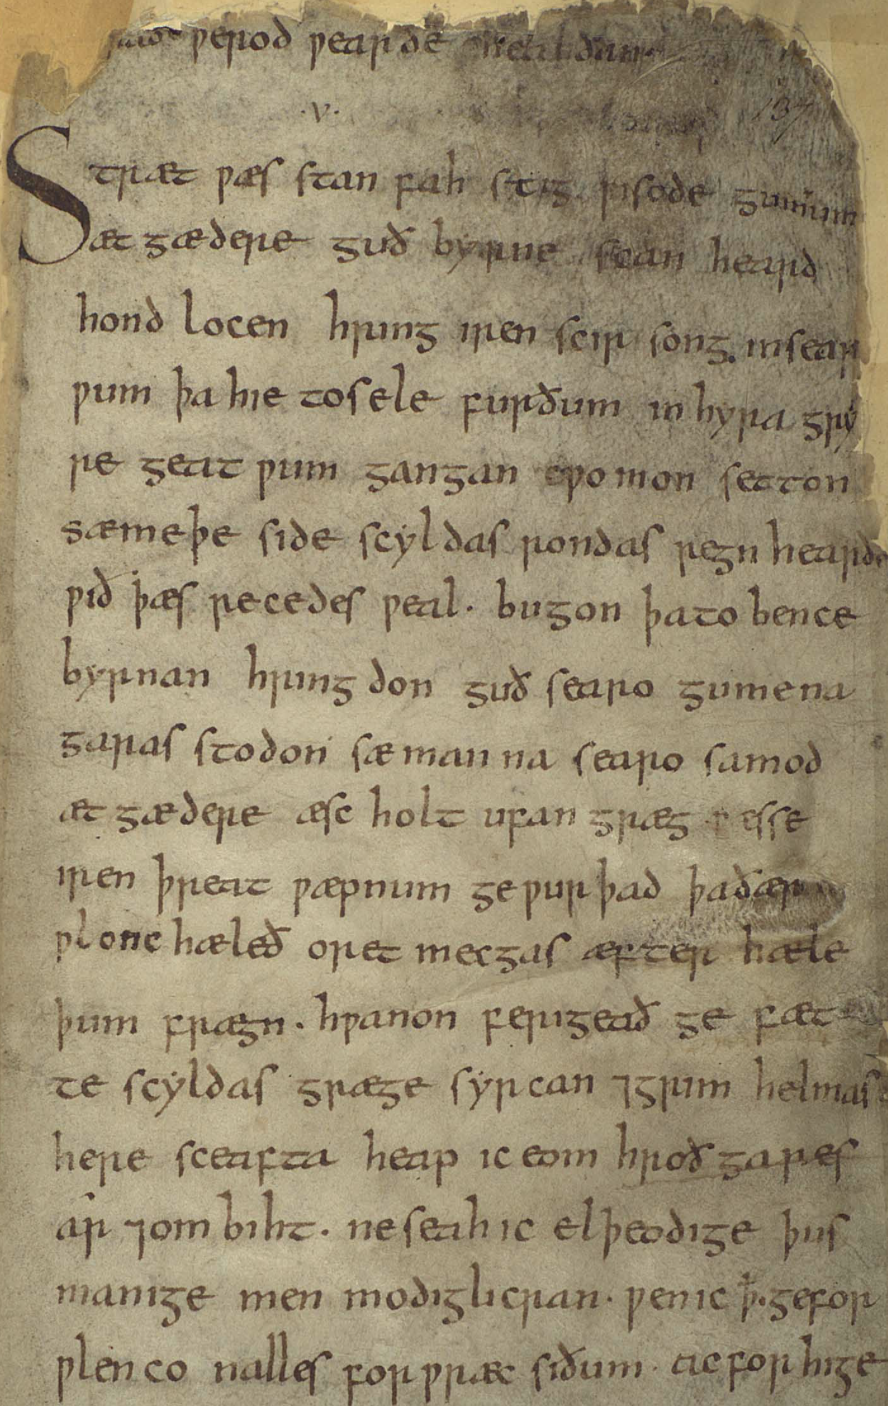 wið werod wearde healdan
·v·
Stræt wæs stan fah stig wisode gumum
æt gædere guð byrne scan heard
hond locen hring iren scir song insear
wum þa hie tosele furðum in hyra gry
re geat wum gangan cwomon setton
sæmeþe side scyldas rondas regn hearde
wið þæs recedes weal· bugon þato bence
byrnan hring don guð searo gumena
garas stodon sæ man na searo samod
æt gædere æsc holt ufan græg wæs se
iren þreat wæpnum gewurþad þaðær
wlonc hæleð oret mecgas æfter hæle
þum frægn· hwanon ferigeað ge fæt
te scyldas græge syrcan ⁊grim helmas
here sceafta heap ic eom hroðgares
ar ⁊om biht· ne seah ic elþeodige þus
manige men modiglicran· wen ic ꝥ· gefor
wlenco nalles forwræc siðum· ac for hige